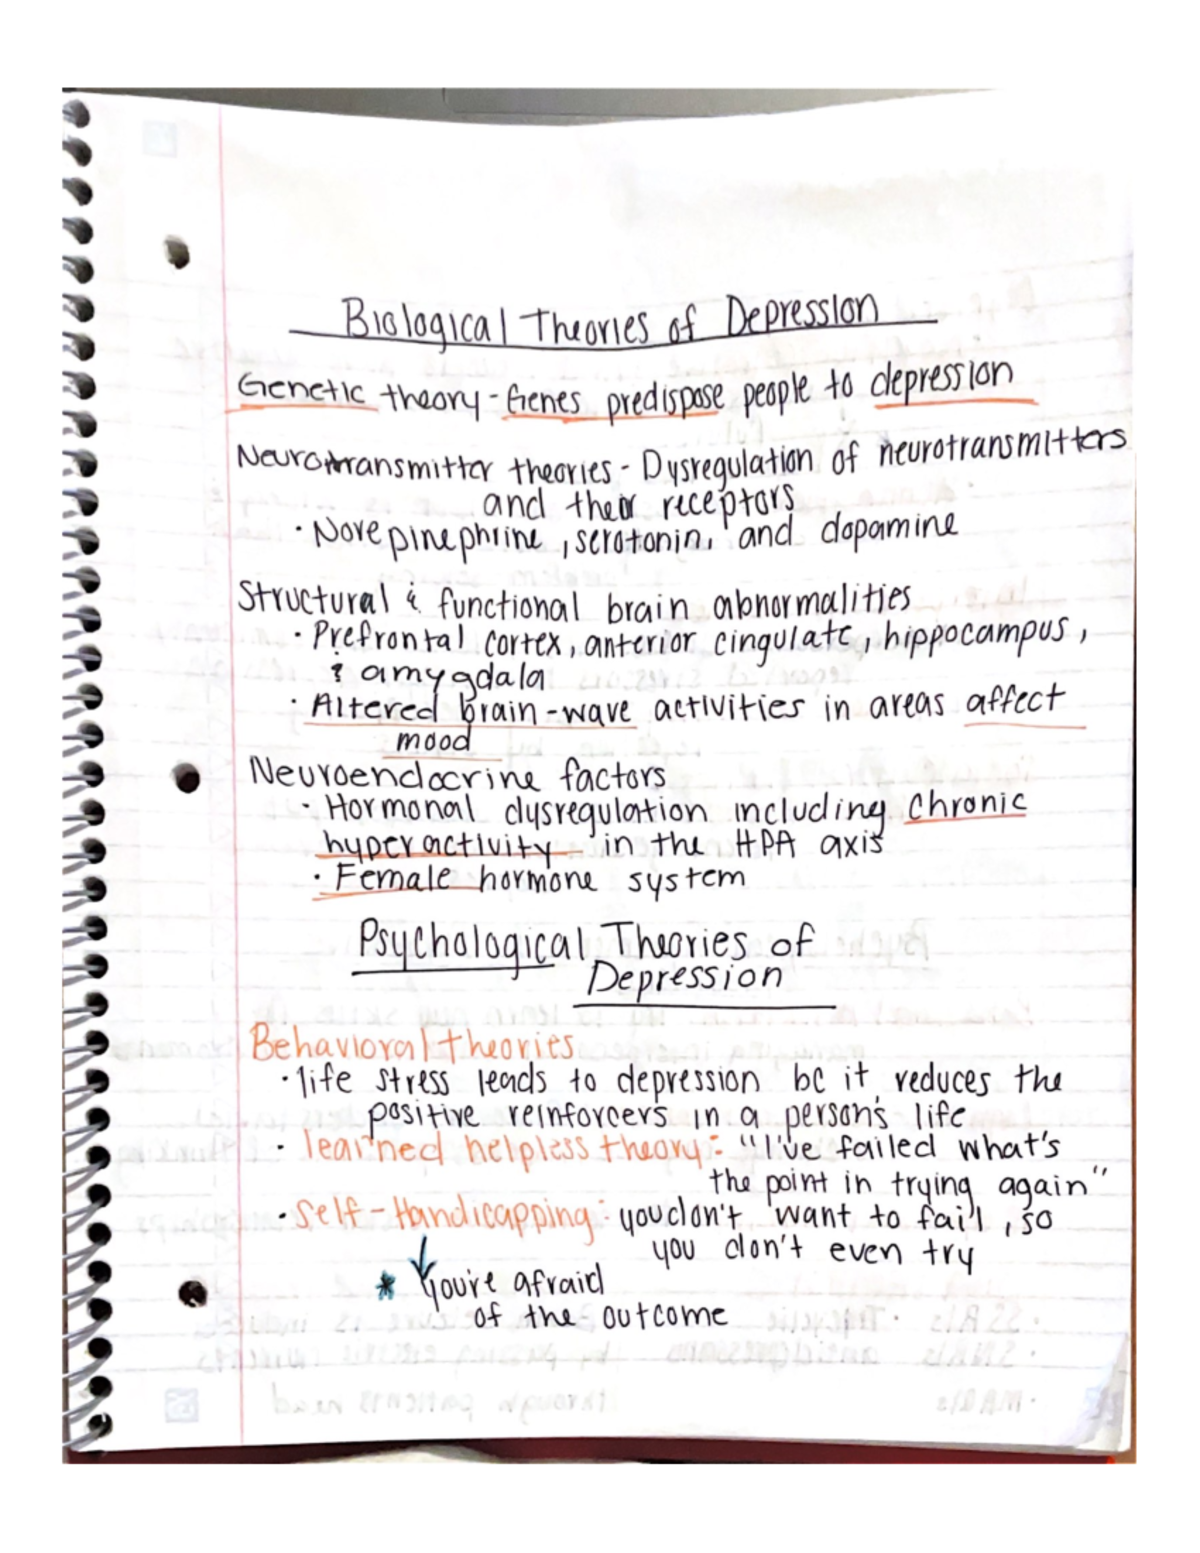 Biological Theories of Depression
Genetic theory - Genes predispose people to depression
Neurotransmitter theories - Dysregulation of neurotransmitters
and their receptors
· Norepinephrine, serotonin, and dopamine
Structural & functional brain abnormalities
· Prefrontal cortex, anterior cingulate, hippocampus,
& amygdala
· Altered brain-wave activities in areas affect
mood
Neuroendocrine factors
· Hormonal dysregulation including chronic
hyperactivity in the HPA axis
· Female hormone system
Psychological Theories of
Depression
Behavioral theories
· life stress leads to depression bc it reduces the
positive reinforcers in a person's life
· learned helpless theory: "I've failed what's
the point in trying again"
· Self-Handicapping: you don't want to fail, so
you don't even try
* You're afraid
of the outcome